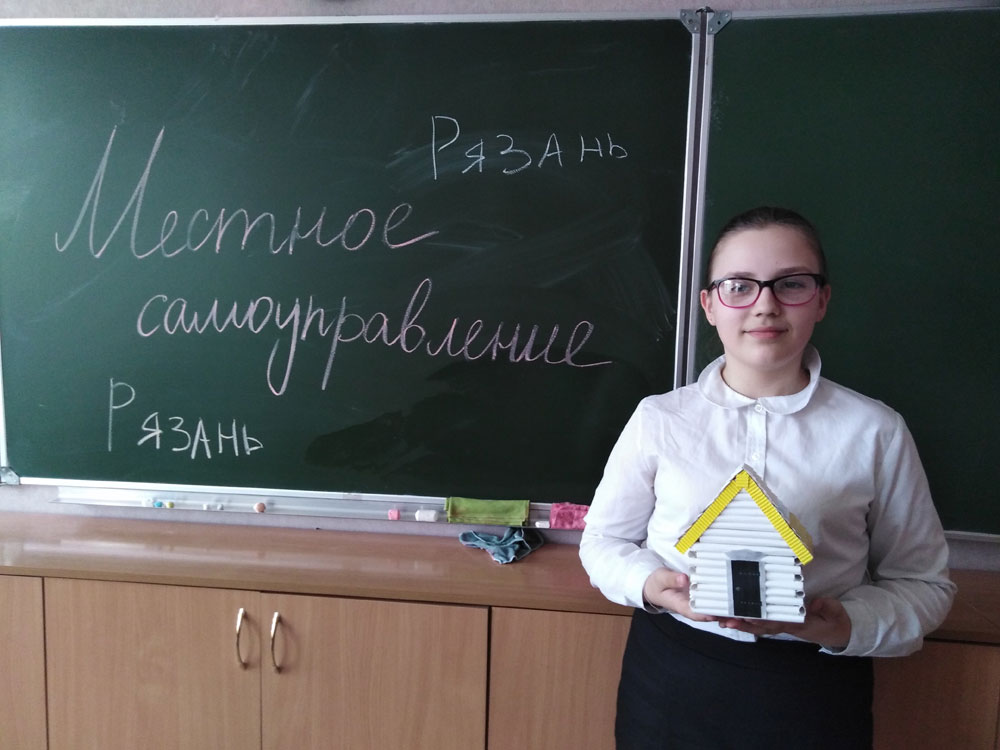 Рязань
Местное
самоуправление
Рязань